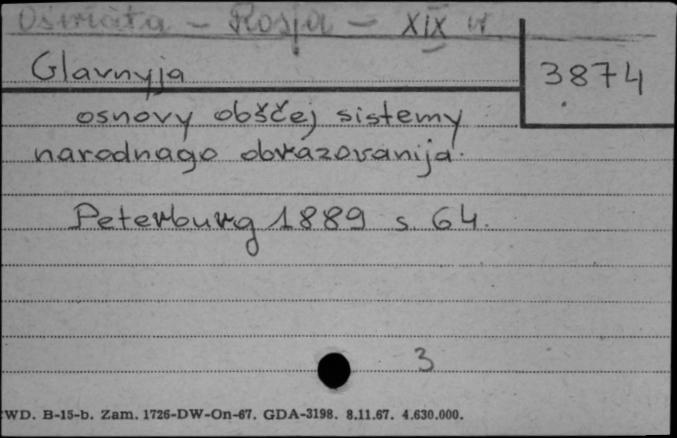 Oświata - Rosja - XIX w
Glavnyja
3874
osnovy obščej sistemy
narodnago obrazovanija.
Peterburg 1889 s. 64.
3
WD. B-15-b. Zam. 1726-DW-On-67. GDA-3198. 8.11.67. 4.630.000.